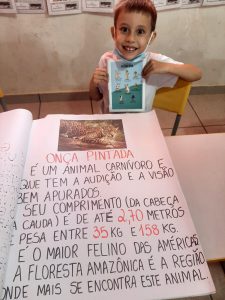 ONÇA PINTADA
É UM ANIMAL CARNÍVORO E
QUE TEM A AUDIÇÃO E A VISÃO
BEM APURADOS.
SEU COMPRIMENTO (DA CABEÇA
A CAUDA) E DE ATÉ 2,70 METROS
PESA ENTRE 35 KG E 158 KG.
É O MAIOR FELINO DAS AMÉRICAS
A FLORESTA AMAZÔNICA É A REGIÃO
ONDE MAIS SE ENCONTRA ESTE ANIMAL.